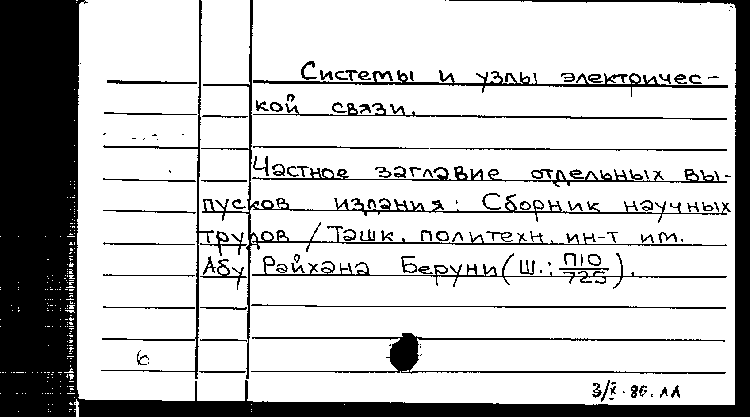 Системы и узлы электричес-
кой связи.
Частное заглавие отдельных вы-
пусков издания: Сборник научных
трудов / Ташк. политехн. ин-т им.
Абу Райхана Беруни (Ш.: П10/725).
6
3/X-86.